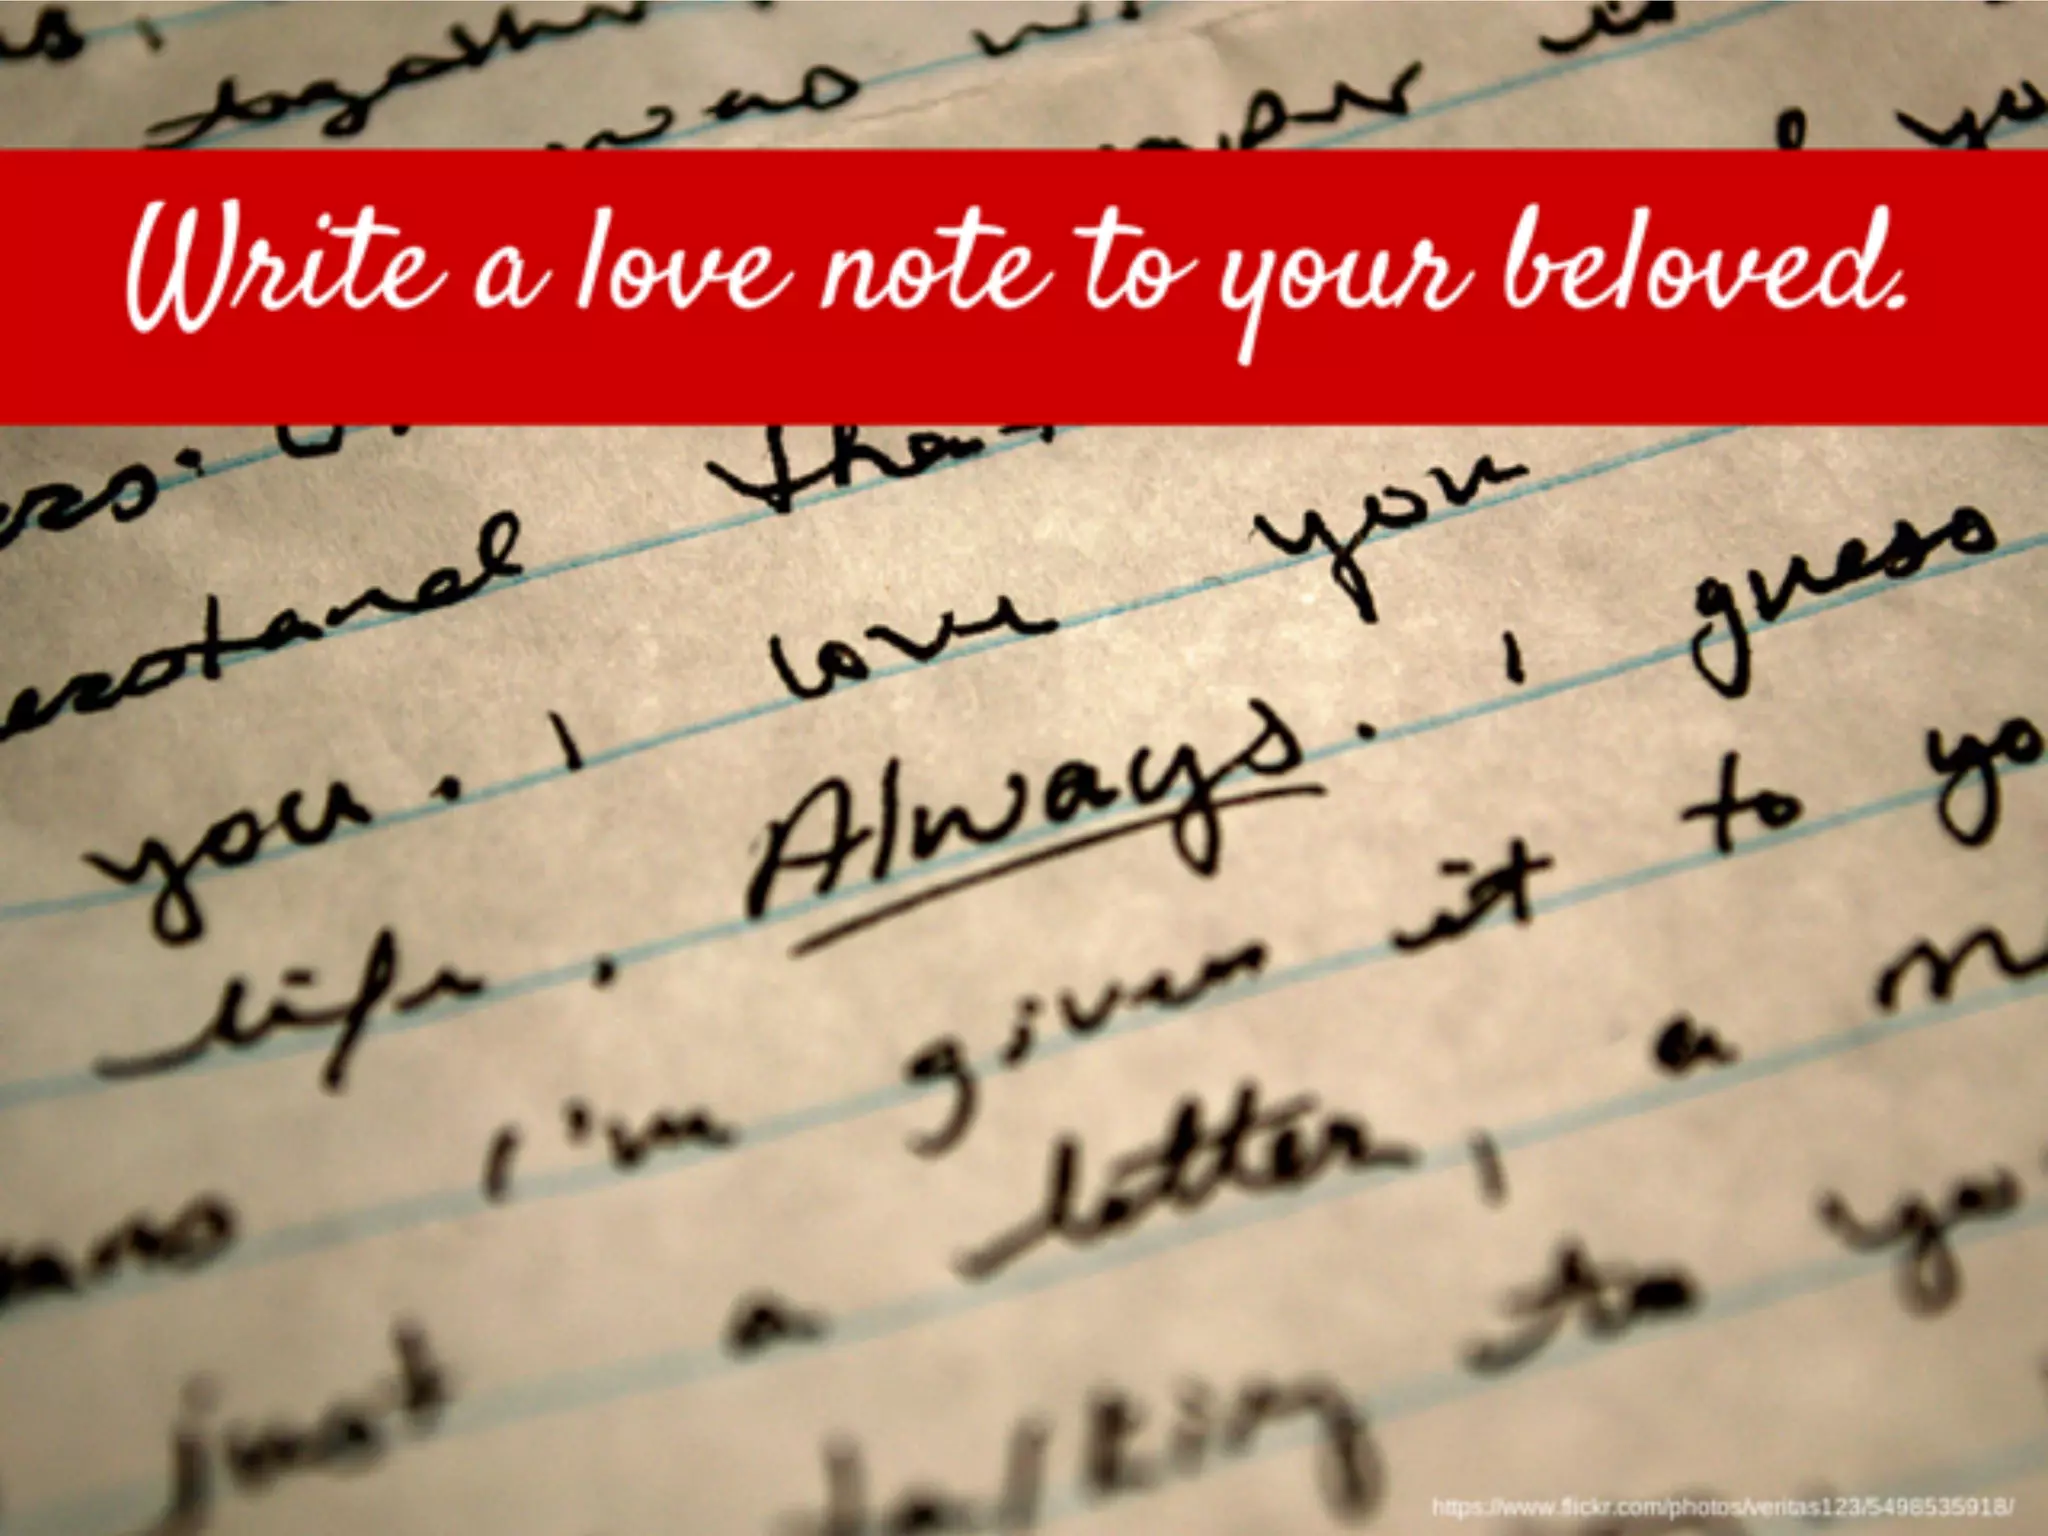 together
was
is
you
Write a love note to your beloved.
that
you
love
guess
you. I
Always. I
to yo
life.
given it
I'm
a
letter,
just a
to you
talking
https://www.flickr.com/photos/veritas123/5498535918/